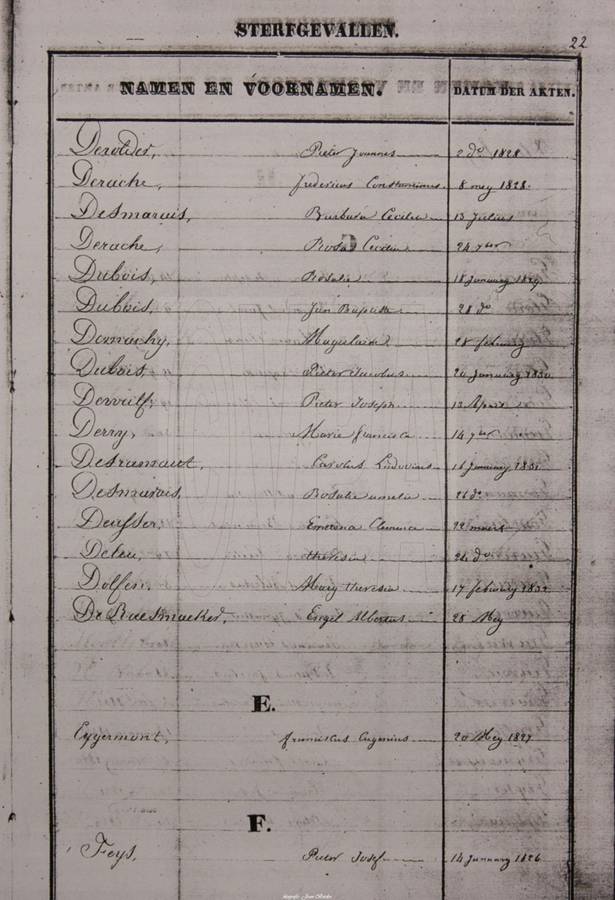 STERFGEVALLEN.
22
NAMEN EN VOORNAMEN. DATUM DER AKTEN.
Derolder, Pieter Joannes 2 do 1828
Derache, fredericus Constantinus 8 mey 1828.
Desmarais, Barbara Cecilia 13 Julius
Derache, Rosa Cecilia 24 7ber
Dubois, Rosalie 18 January 1829
Dubois, Jan Baptiste 28 do
Demachy, Magdalena 28 february
Dubois, Pieter Jacobus 20 January 1830
Pieter Joseph 13 April
Derry, Marie francisca 14 7ber
Desramaut, Carolus Ludovicus 16 January 1831
Desmarais, Rosalie amelia 26 do
Clemence 22 maert
Deleu, theresia 24 do
Dolfen, Mary theresia 17 february 1832
De Baesmaeker, Engel Albertus 28 Mey
E.
Eggermont, franciscus Eugenius 20 Mey 1827
F.
Feys, Pieter Josef 14 January 1826